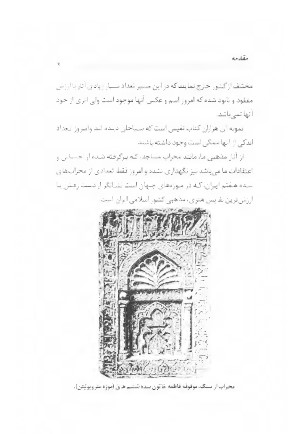 مقدمه
مختلف از کشور خارج نمایند که در این مسیر تعداد بسیار زیادی آثار با ارزش
مفقود و نابود شده که امروز اسم و عکس آنها موجود است ولی اثری از خود
آنها نمی‌باشد.
نمونه آن هزاران کتاب نفیس است که سیاحان دیده‌اند و امروز تعداد
اندکی از آنها ممکن است وجود داشته باشند.
از آثار مذهبی ما، مانند محراب مساجد، که برگرفته شده از احساس و
اعتقادات ما می‌باشد نیز نگهداری نشده و امروز فقط تعدادی از محراب‌های
سده هفتم ایران، که در موزه‌های جهان است بیانگر از دست رفتن با
ارزش‌ترین نفایس هنری، مذهبی کشور اسلامی ایران است.
محراب از سنگ، موقوفه فاطمه خاتون سده ششم هـ.ق (موزه متروپولیتن).